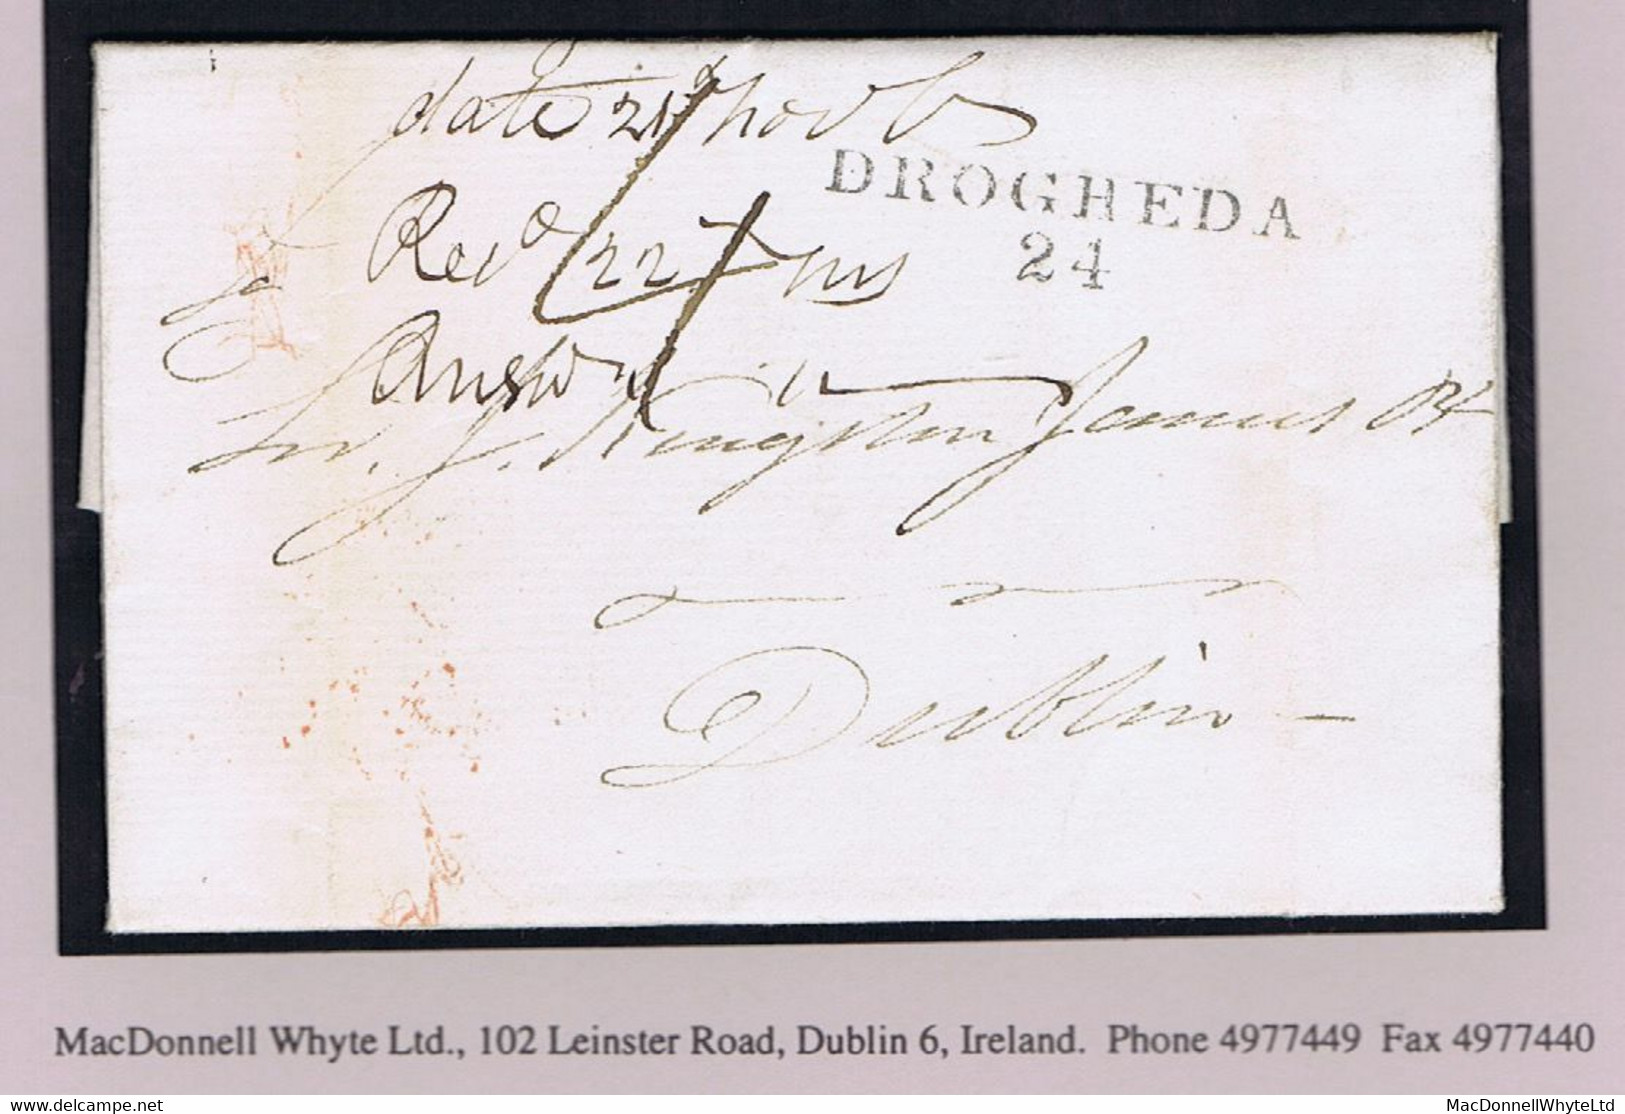 date 21st Novb
DROGHEDA
24
Recd 22
Answd
J. Kingston James St
Dublin
MacDonnell Whyte Ltd., 102 Leinster Road, Dublin 6, Ireland. Phone 4977449 Fax 4977440
delcampe.net
MacDonnellWhyteLtd